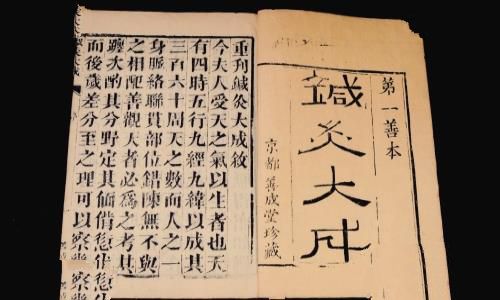 第一善本
鍼灸大成
京都善成堂珍藏
重刊鍼灸大成敘
今夫人受天之氣以生者也天
有四時五行九經九緯以成其
三百六十周天之數而人之一
身脈絡聯貫部位錯陳無不與
之相配善觀天者必為之考其
躔次酌其分野定其
而後歲差分至之理可以察